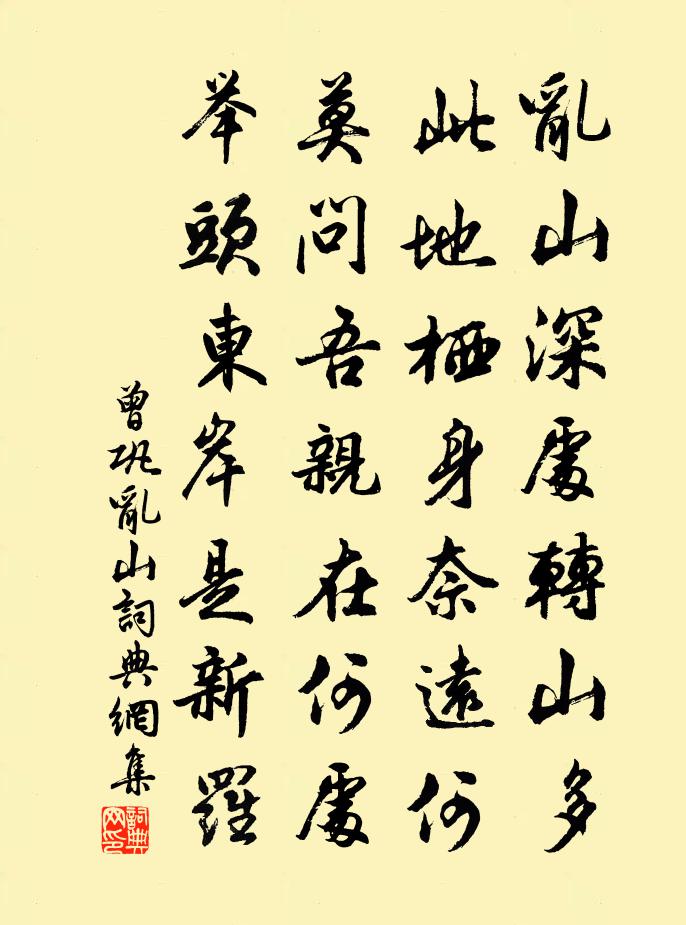 亂山深處轉山多
此地栖身奈遠何
莫問吾親在何處
举頭東岸是新羅
曾巩亂山詞典網集
詞典网印